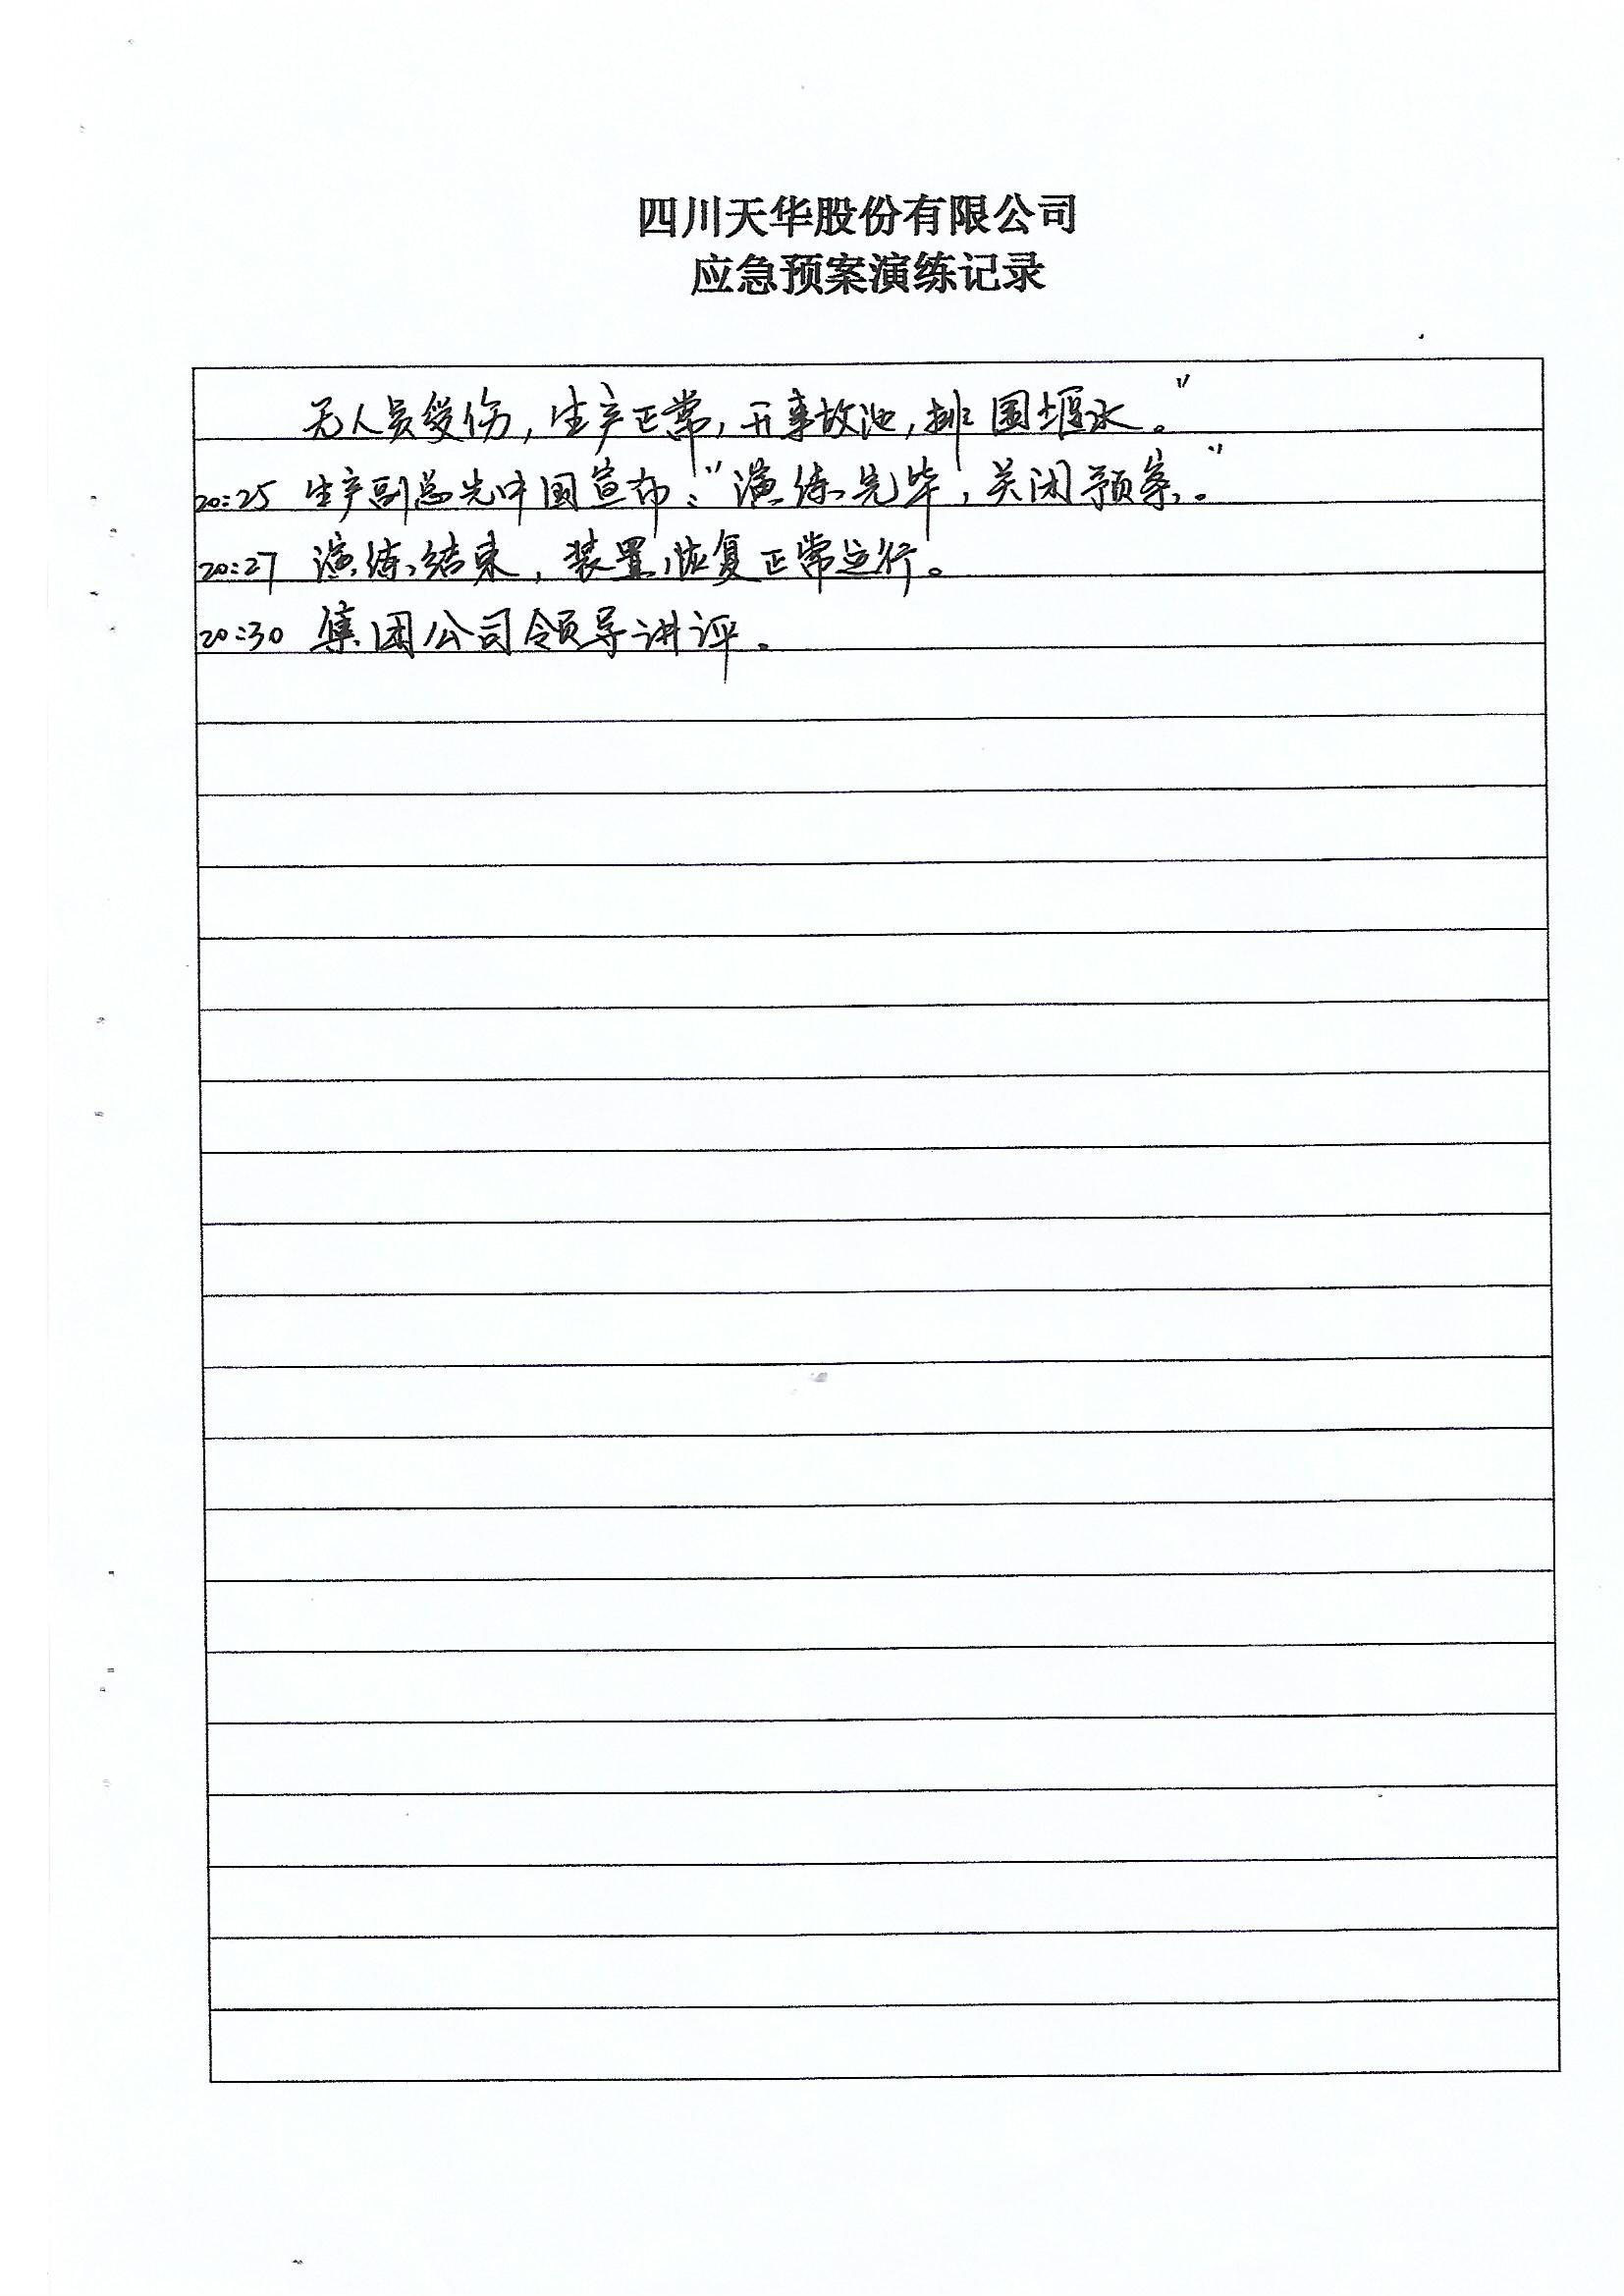 四川天华股份有限公司
应急预案演练记录
无人员受伤,生产正常,开事故池,排围堰水。”
20:25 生产副总先中国宣布:“演练完毕,关闭预案。”
20:27 演练结束,装置恢复正常运行。
20:30 集团公司领导讲评。